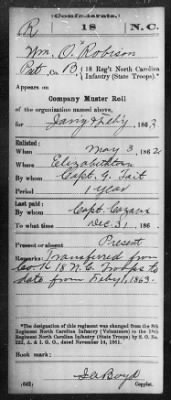 (Confederate.)
R 18 N.C.
Wm. O. Robison
Pvt., Co. B, 18 Reg't North Carolina
Infantry (State Troops).*
Appears on
Company Muster Roll
of the organization named above,
for Jan'y & Feb'y, 1863.
Enlisted:
When May 3, 1862.
Where Elizabethtown
By whom Capt. G. Tait
Period 1 year
Last paid:
By whom Capt. Cazaux
To what time Dec. 31, 186
Present or absent Present
Remarks: Transferred from
Co. K 18 N.C. Troops to
date from Feby 1, 1863.
*The designation of this regiment was changed from the 8th
Regiment North Carolina Infantry (Volunteers) to the 18th
Regiment North Carolina Infantry (State Troops) by S. O. No.
222, A. & I. G. O., November 14, 1861.
Book mark:
(642) Boyd
Copyist.